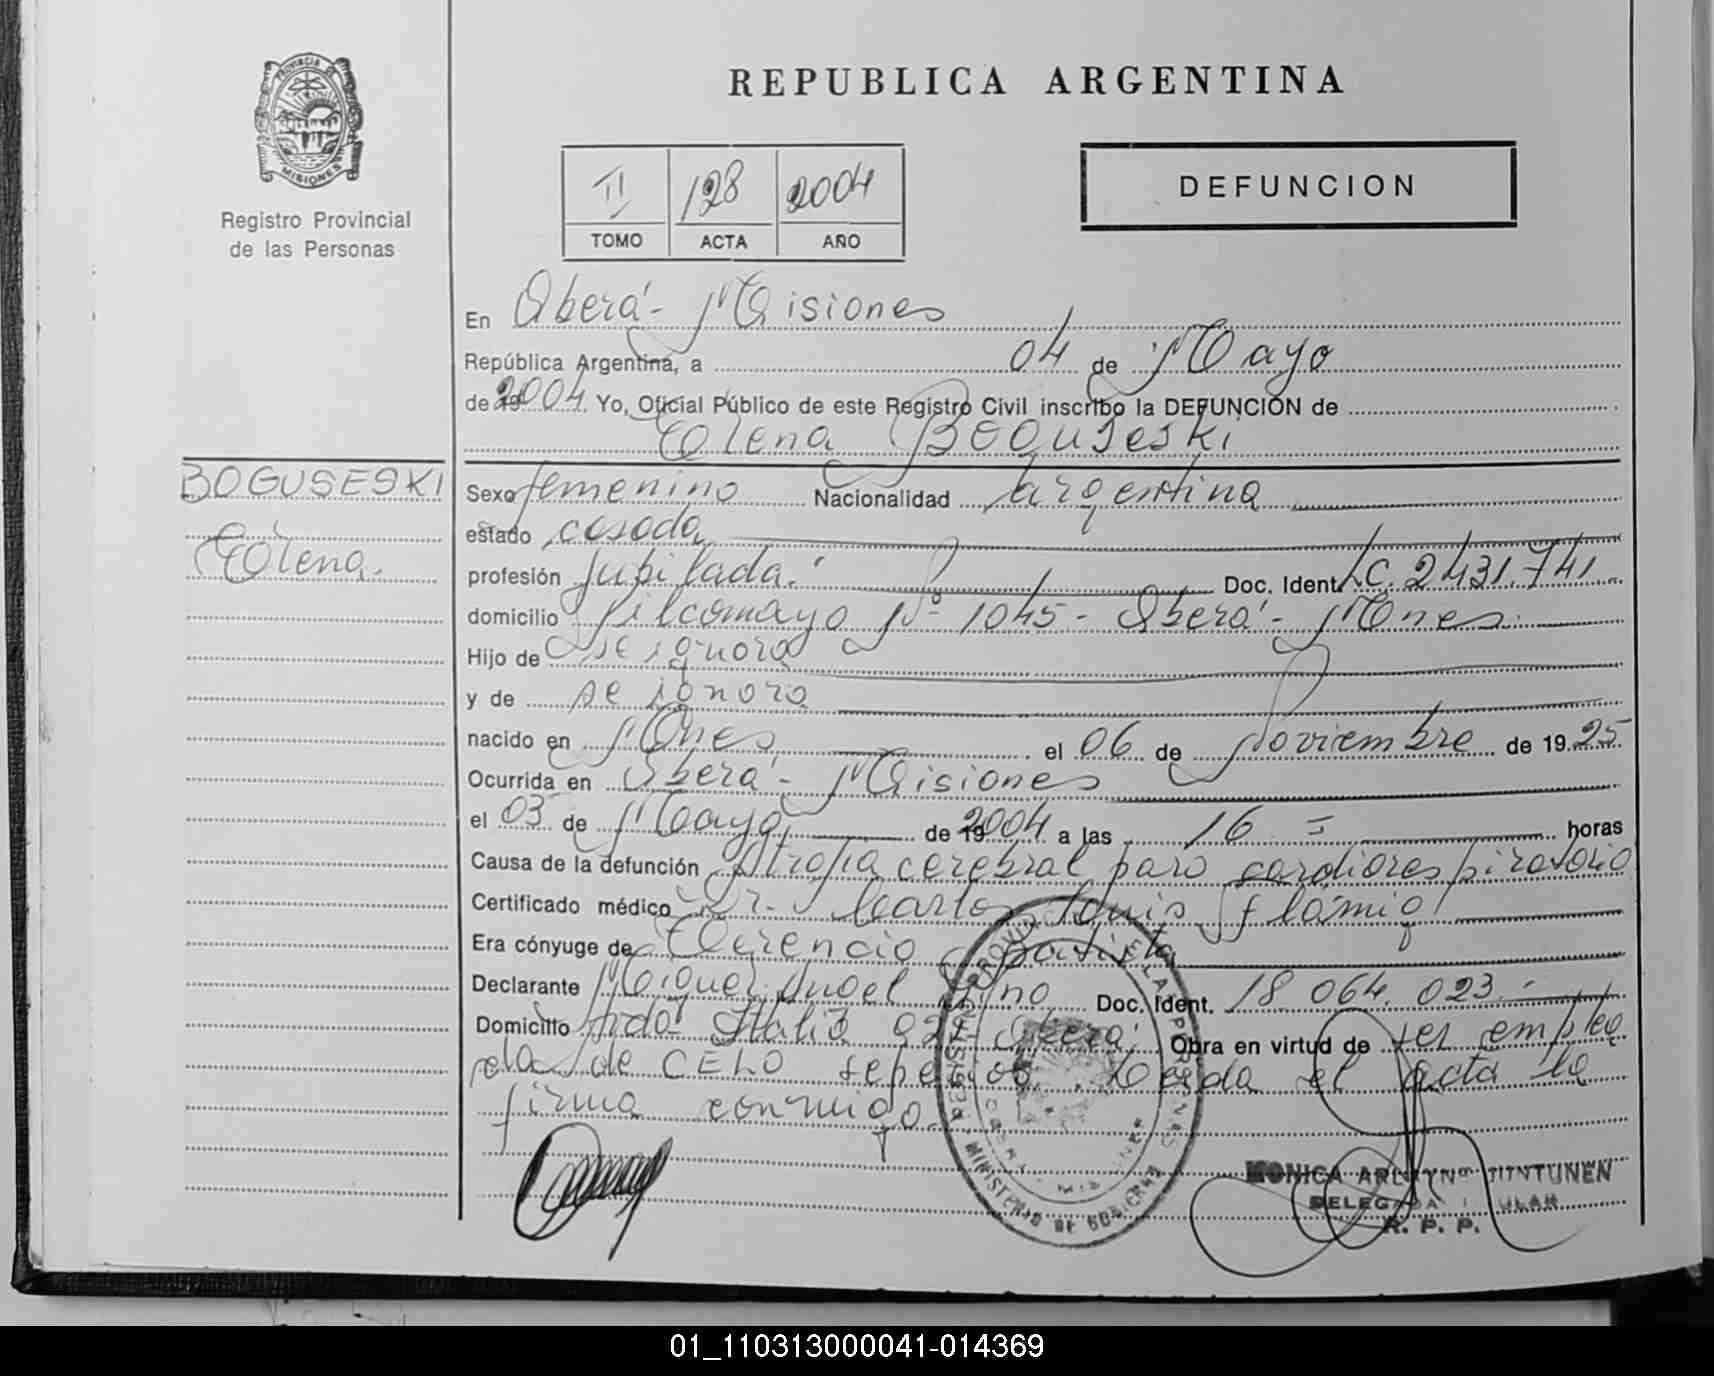 PROVINCIA DE
MISIONES
Registro Provincial
de las Personas
REPUBLICA ARGENTINA
II 128 2004
TOMO ACTA AÑO
DEFUNCION
En Oberá - Misiones
República Argentina, a 04 de Mayo
de 2004 Yo, Oficial Público de este Registro Civil inscribo la DEFUNCIÓN de
Elena Boguseski
BOGUSESKI
Elena.
Sexo femenino Nacionalidad argentina
estado casada
profesión Jubilada. Doc. Ident. L.C. 2431.741
domicilio Pilcomayo Nº 1045 - Oberá - Mnes.
Hijo de se ignora
y de se ignora
nacido en Mnes el 06 de Noviembre de 1925
Ocurrida en Oberá - Misiones
el 03 de Mayo de 2004 a las 16 = horas
Causa de la defunción Atrofia cerebral paro cardiorespiratorio
Certificado médico Dr. Carlos Luis
Era cónyuge de
Declarante Miguel Angel Doc. Ident. 18 064. 023.-
Domicilio Avda Italia Oberá. Obra en virtud de ser emplea
da de CELO sepelios. Leida el acta la
firma conmigo.
REGISTRO PROVINCIAL DE LAS PERSONAS
MINISTERIO DE GOBIERNO
MONICA
DELEGADA TITULAR
R. P. P.
01_110313000041-014369